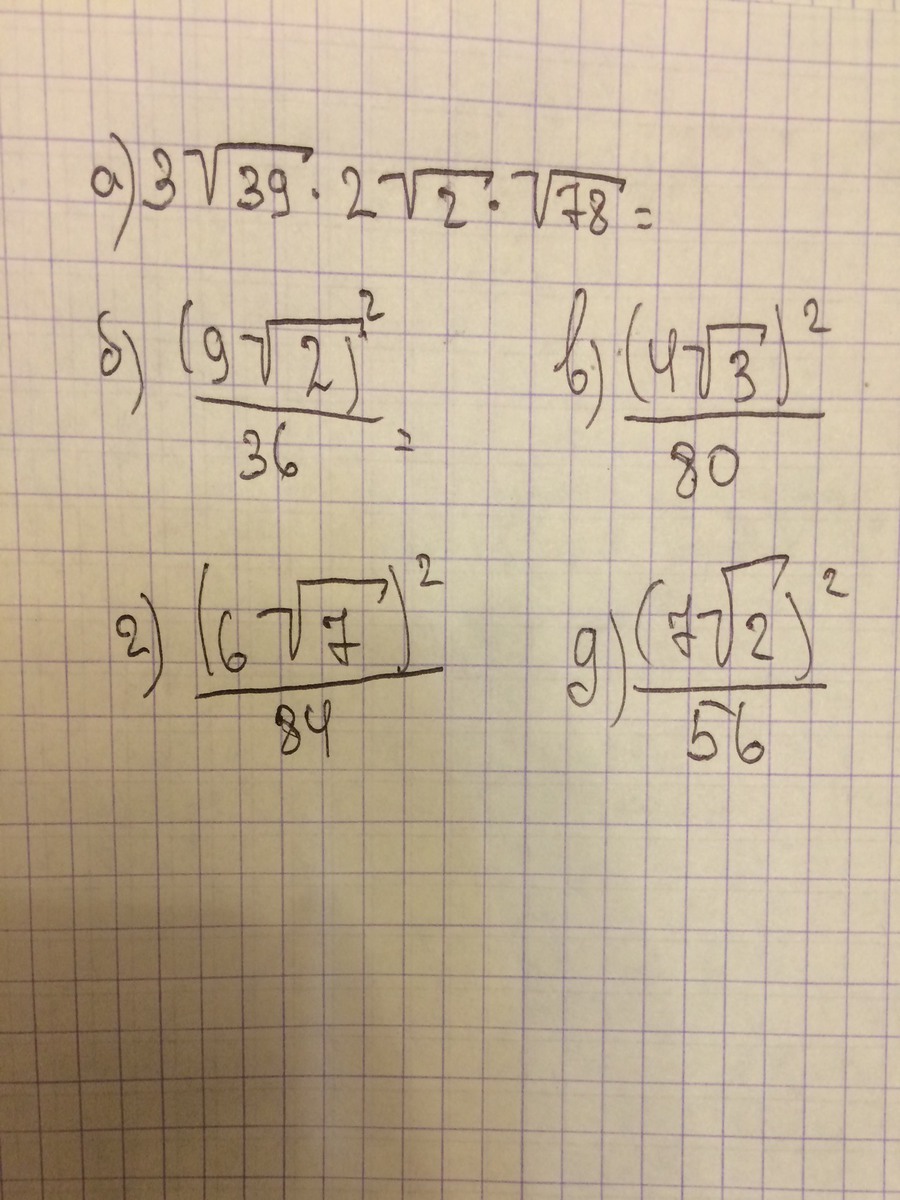 а) 3√39 · 2√2 · √78 =
б) (9√2)² / 36 = в) (4√3)² / 80
г) (6√7)² / 84 д) (7√2)² / 56